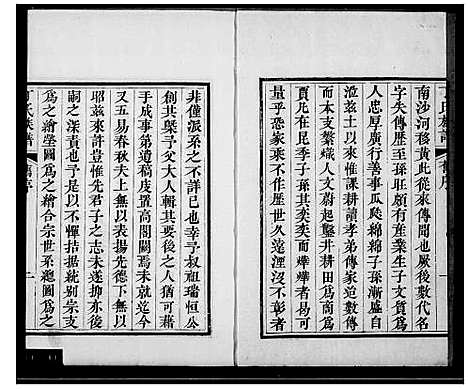 南沙河移黃此從來傳聞也厥後數代名
字失傳歷至孫耴居有產業生子文質爲
人忠厚廣行善事瓜瓞綿綿子孫漸盛自
淮茲土以來惟課耕讀孝弟傳家迨數傳
而本支繁熾人文蔚起鑿井耕田爲商爲
賈凡在昆季子孫其嘩嘩者可
量乎恐家不作歷世久遠湮沒不彰者
丁氏族譜
舊序
非僅派系之不詳已也幸予叔祖瑞恒公
創其槩予父大人輯其要後之人猶可藉
手成事第遺稿庋置高閣闕焉未就迄今
又五易春秋夫上無以表揚先德下無以
昭茲來許豈惟先君子之志未遂抑亦後
嗣之深責也予以不憚拮据統別宗支
爲之繪塋圖爲之繪合宗世系總圖爲之
丁氏族譜
舊序
一